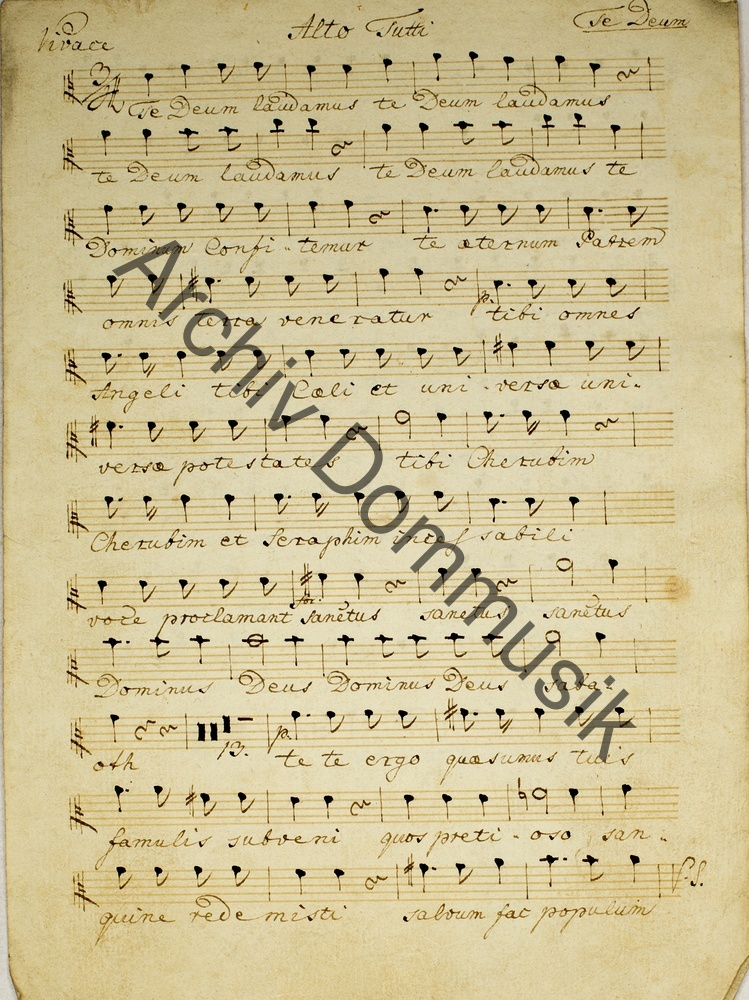 Vivace Alto Tutti Te Deum
Te Deum laudamus te Deum laudamus
te Deum laudamus te Deum laudamus te
Dominum Confi - temur te æternum Patrem
omnis terra veneratur p. tibi omnes
Angeli tibi Cœli et uni - versæ uni -
versæ potestates tibi Cherubim
Cherubim et Seraphim inces sabili
voce proclamant for. sanctus sanctus sanctus
Dominus Deus Dominus Deus saba -
oth 13. p. te te ergo quæsumus tuis
famulis subveni quos preti - oso san -
guine redemisti salvum fac populum
Archiv Dommusik